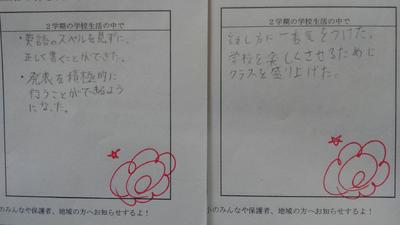 ２学期の学校生活の中で
・英語のスペルを見ずに、
正しく書くことができた。
・発表を積極的に
行うことができるよう
になった。
のみんなや保護者、地域の方へお知らせするよ！
２学期の学校生活の中で
話し方に一番気をつけた。
学校を楽しくさせるために
クラスを盛り上げた。
小のみんなや保護者、地域の方へお知らせするよ！